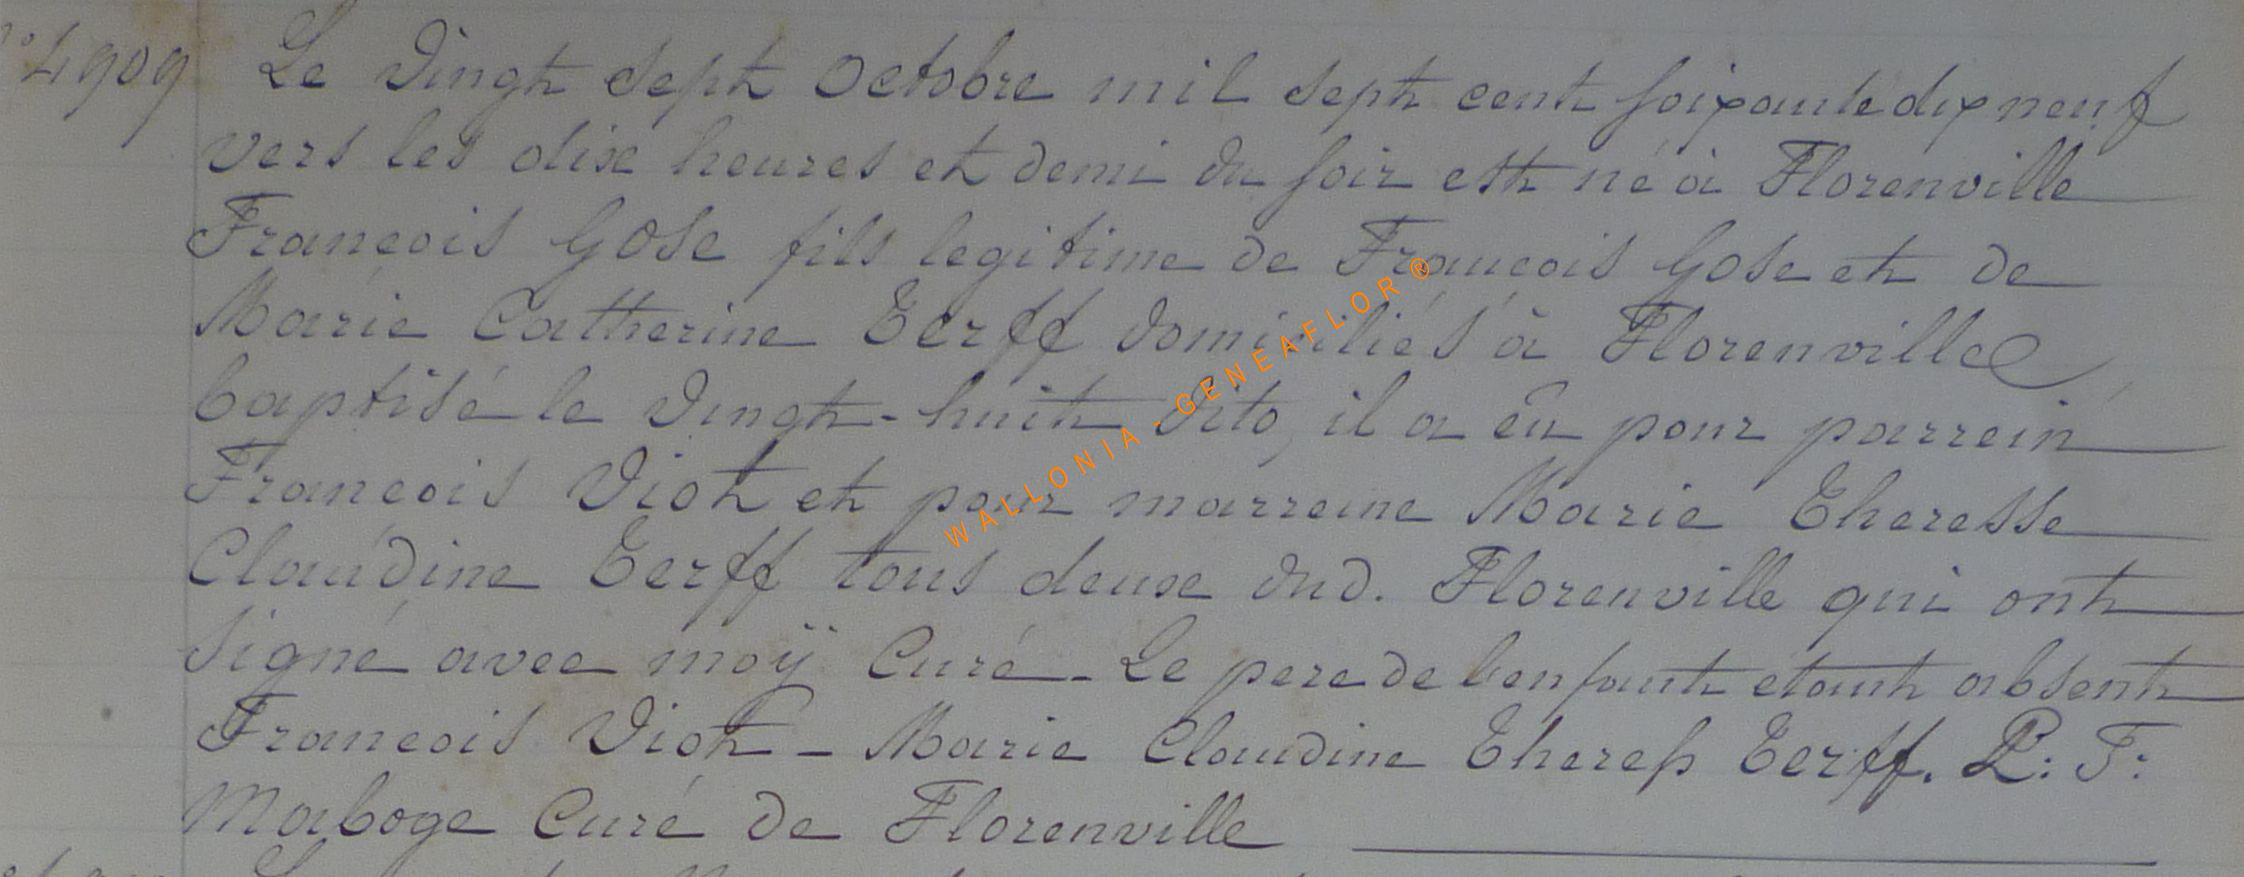 n° 4909 Le vingt sept octobre mil sept cent soixante dix neuf
vers les dix heures et demi du soir est né à Florenville
François Gose fils legitime de François Gose et de
Marie Catherine Terff domiciliés à Florenville
baptisé le vingt-huit dito, il a eû pour parrein
François Viot et pour marreine Marie Theresse
Claudine Terff tous deux dud. Florenville qui ont
signé avec moÿ Curé - Le pere de l'enfant etant absent
François Viot - Marie Claudine Theress Terff. P: F:
Maboge Curé de Florenville
WALLONIA - GENEAFLOR ®